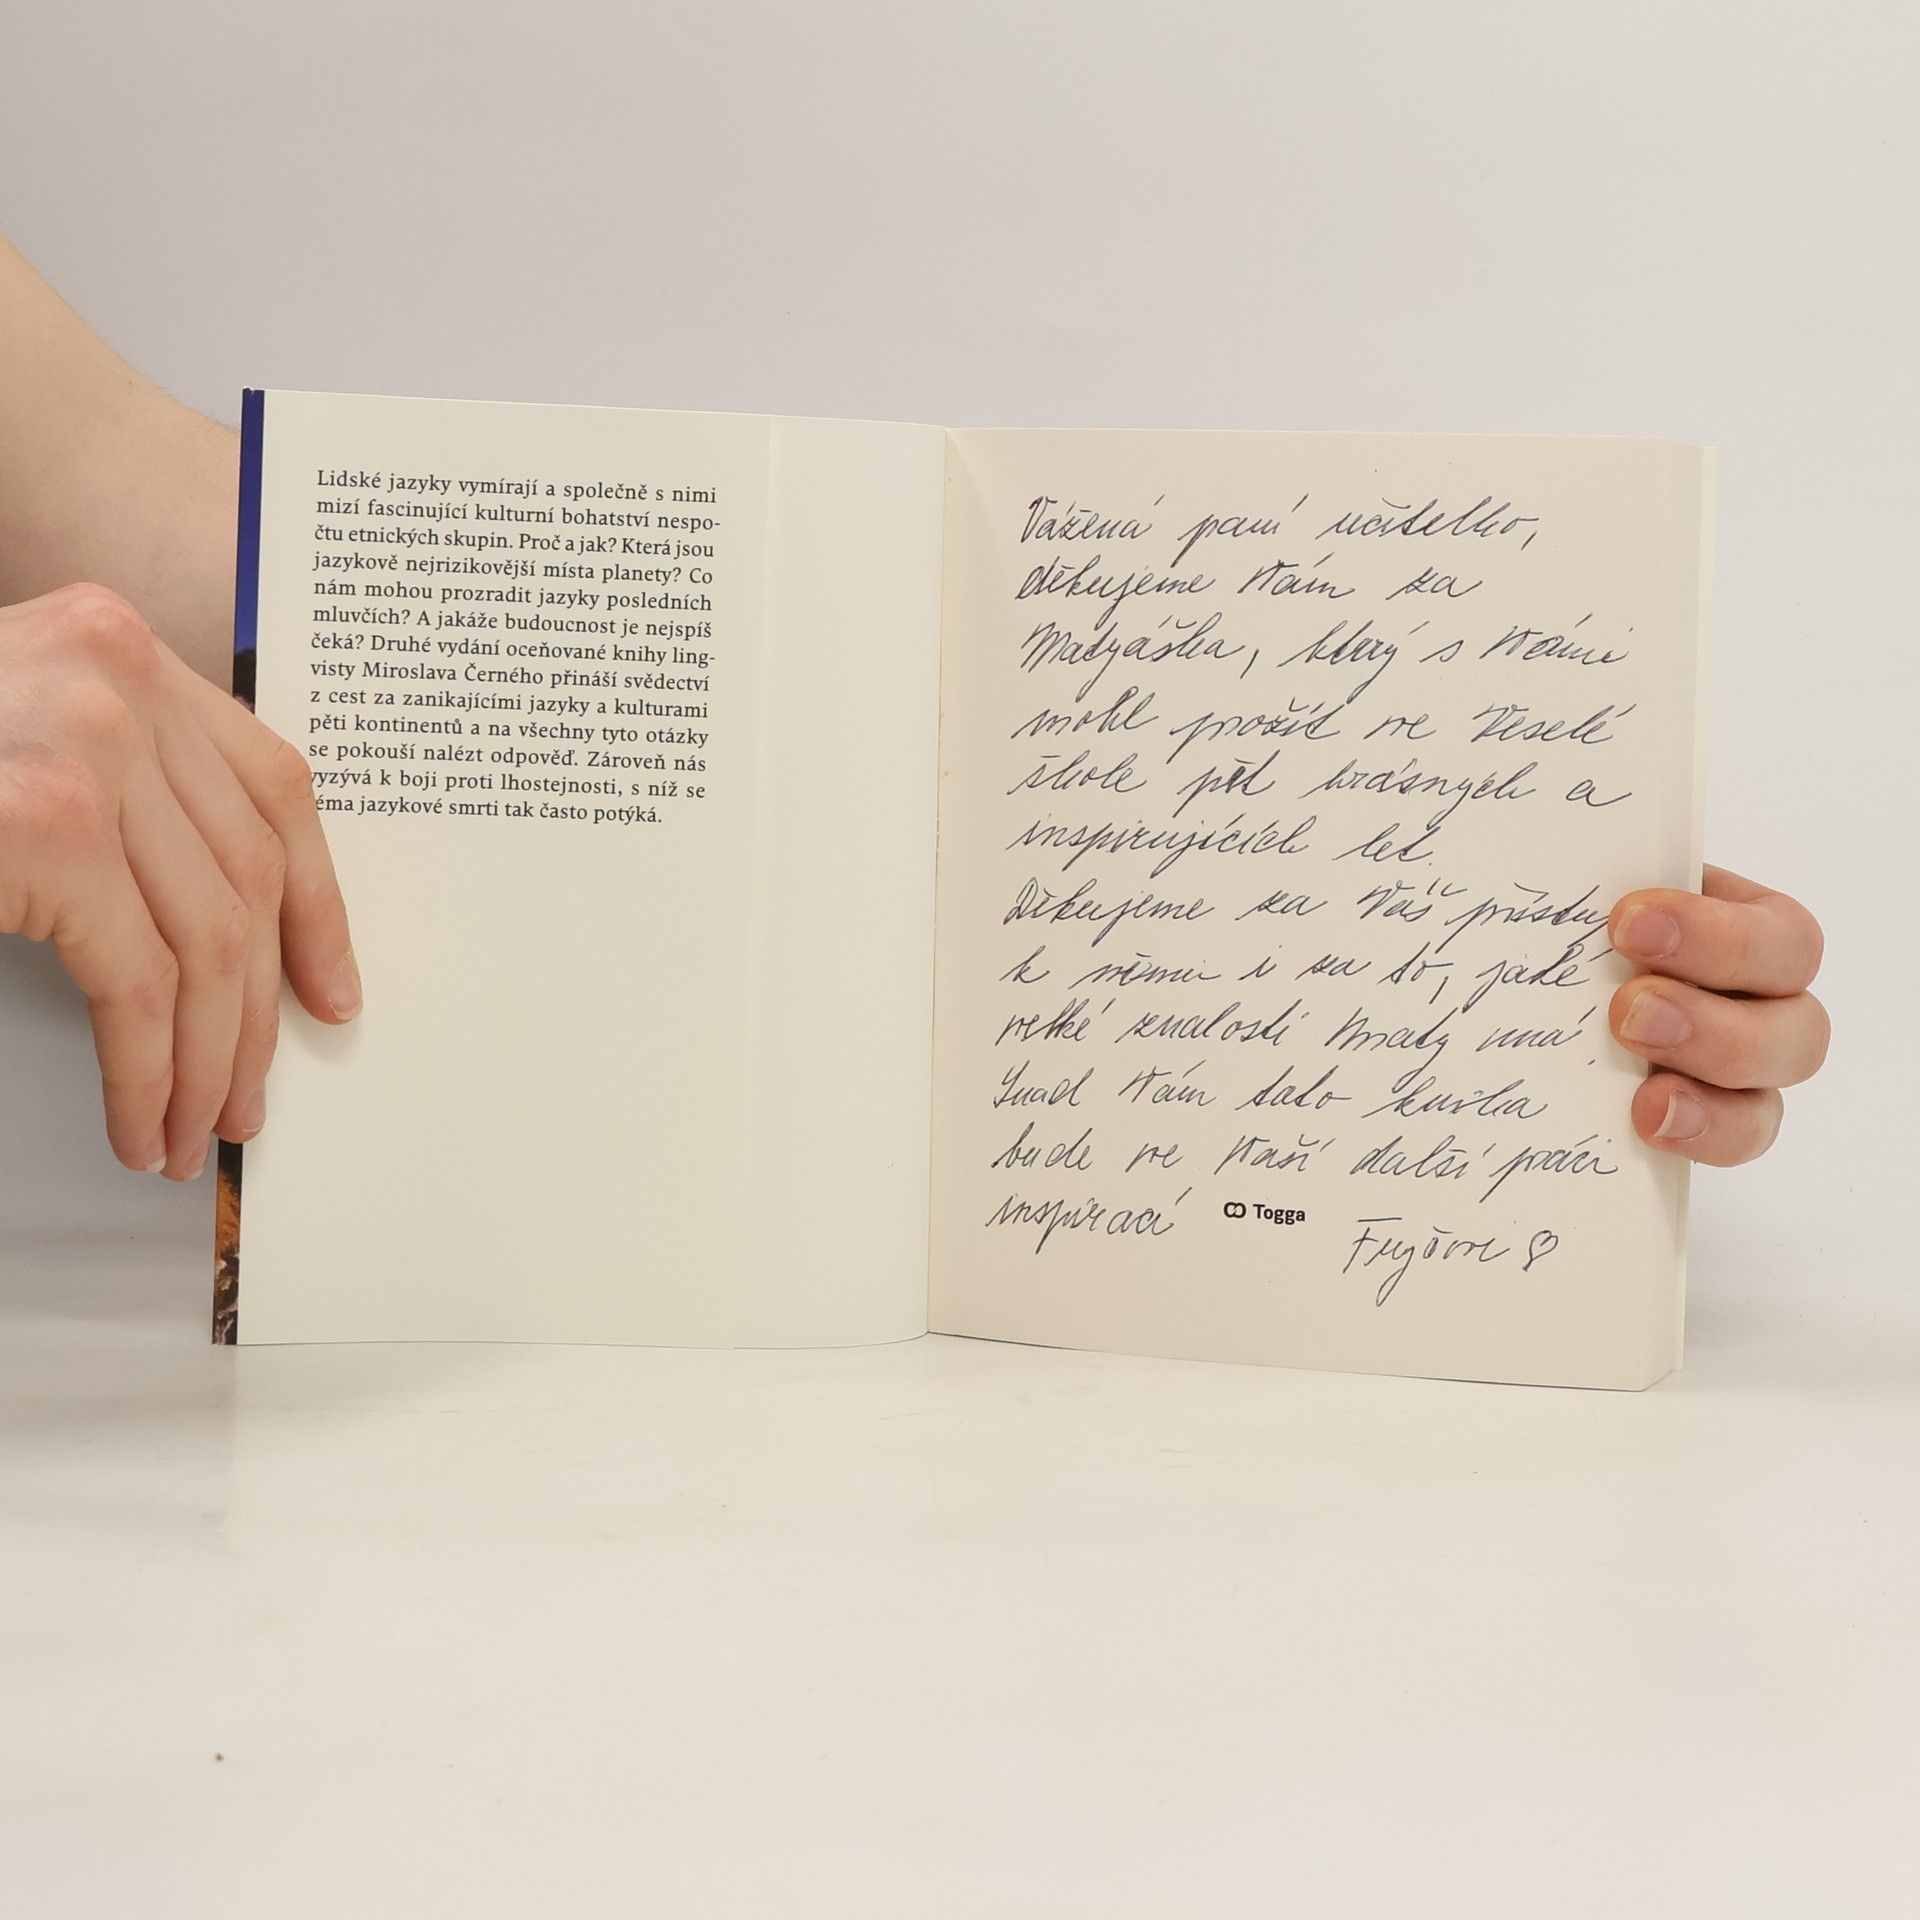 Lidské jazyky vymírají a společně s nimi
mizí fascinující kulturní bohatství nespo-
čtu etnických skupin. Proč a jak? Která jsou
jazykově nejrizikovější místa planety? Co
nám mohou prozradit jazyky posledních
mluvčích? A jakáže budoucnost je nejspíš
čeká? Druhé vydání oceňované knihy ling-
visty Miroslava Černého přináší svědectví
z cest za zanikajícími jazyky a kulturami
pěti kontinentů a na všechny tyto otázky
se pokouší nalézt odpověď. Zároveň nás
vyzývá k boji proti lhostejnosti, s níž se
éma jazykové smrti tak často potýká.
Vážená paní učitelko,
děkujeme Vám za
Matyáška, který s Vámi
mohl prožít ve Veselé
škole pět krásných a
inspirujících let.
Děkujeme za Váš přístup
k němu i za to, jaké
velké znalosti Maty má.
Snad Vám tato knížka
bude ve Vaší další práci
inspirací
Togga